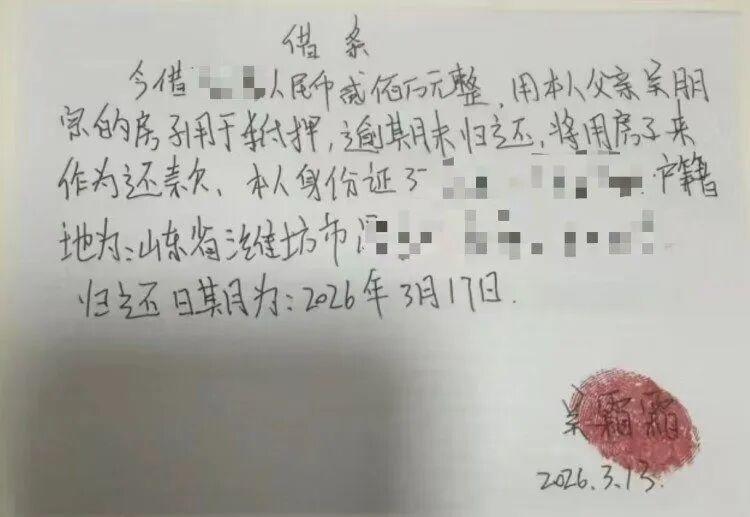 借条
今借 人民币贰佰万元整,用本人父亲吴朋
宗的房子用于抵押,逾期未归还,将用房子来
作为还款、本人身份证3 户籍
地为:山东省潍坊市
归还日期为:2026年3月17日.
吴霜霜
2026.3.13.